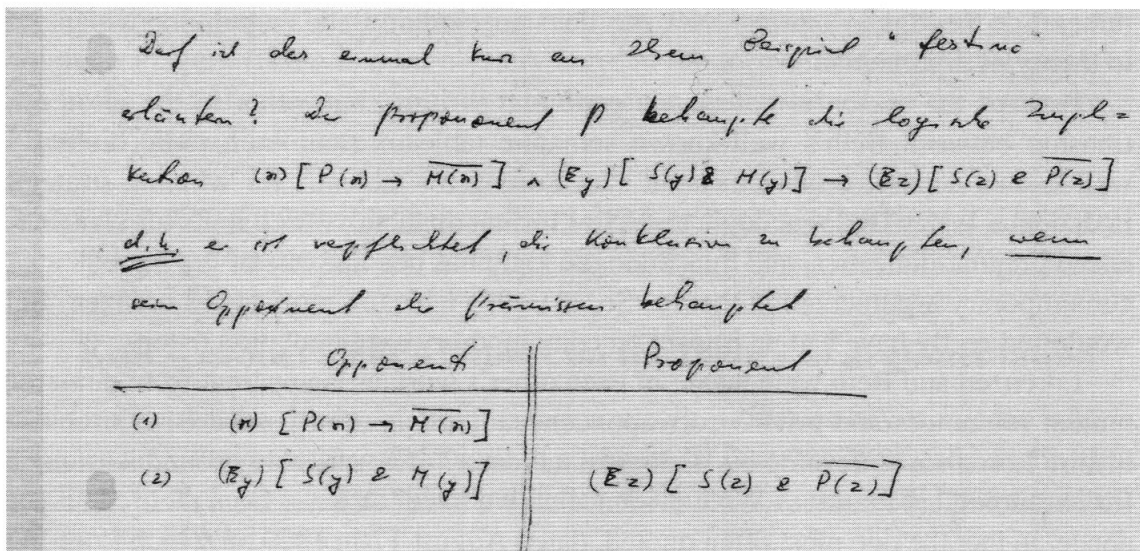 Darf ich das einmal kurz an Ihrem Beispiel "festino
erläutern? Der Proponent P behaupte die logische Impli=
kation (x) [P(x) → M̅(̅x̅)̅] ∧ (Ey) [S(y) & M(y)] → (Ez) [S(z) & P̅(̅z̅)̅]
d.h. er ist verpflichtet, die Konklusion zu behaupten, wenn
sein Opponent die Prämissen behauptet
Opponent Proponent
(1) (x) [P(x) → M̅(̅x̅)̅]
(2) (Ey) [S(y) & M(y)] (Ez) [S(z) & P̅(̅z̅)̅]